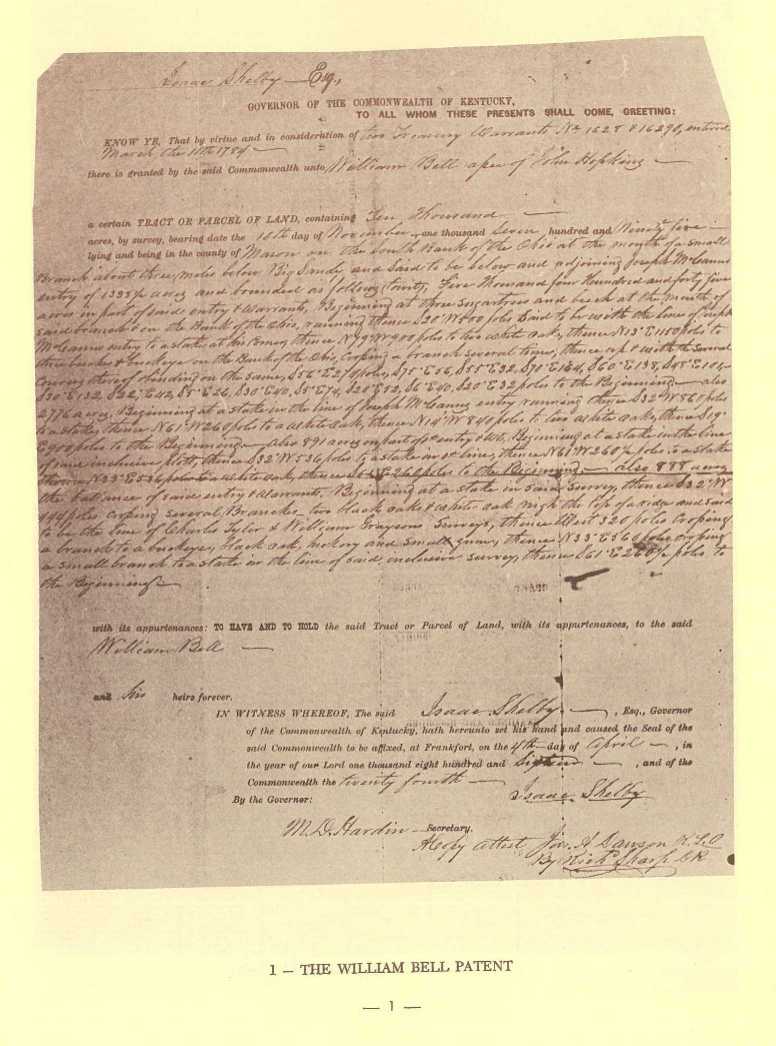 Isaac Shelby Esq.,
GOVERNOR OF THE COMMONWEALTH OF KENTUCKY,
TO ALL WHOM THESE PRESENTS SHALL COME, GREETING:
KNOW YE, That by virtue and in consideration of two Treasury Warrants No 1628 & 16290, entered
March the 11th 1784
there is granted by the said Commonwealth unto William Bell of John Hopkins
a certain TRACT OR PARCEL OF LAND, containing Ten Thousand
acres, by survey, bearing date the day of November one thousand seven hundred and Ninety five
lying and being in the county of Mason on the South Bank of the Ohio at the mouth of a small
Branch about three miles below Big Sandy and Said to be below and adjoining Joseph
entry of acres and bounded as follows towit, Five Thousand four Hundred and forty five
acres in part of said entry & Warrants, Beginning at three sugartrees and beech at the mouth of
said branch & on the Bank of the Ohio, running thence S20°W poles Said to be with the line of Joseph
entry to a stake at his corner, thence poles to two white oaks, thence N13°E 1150 poles to
three beeches & buckeye on the Bank of the Ohio, Croping a branch several times, thence up & with the several
thereof & binding on the same, S56°E 270 poles, S75°E 56, S55°E 32, S70°E 164, S60°E 138, S48°E
S30°E 132, S22°E 42, S5°E 26, S30°E 40, S5°E 74, S20°E 52, S6°E 40, S20°E 32 poles to the Beginning also
2776 acres, Beginning at a stake in the line of Joseph entry running thence S32°W 860 poles
to a stake, thence N61°W 260 poles to a white oak, thence N14°W 840 poles to two white oaks, thence
E 900 poles to the Beginning also 891 acres in part of sd entry & Beginning at a stake in the line
of said inclusive plott, thence S32°W 536 poles to a stake in sd line, thence N61°W 260 poles to a stake
thence N33°E 536 poles to a white oak, thence S61°E 260 poles to the Beginning also 888 acres
the ballance of said entry & Warrants, Beginning at a stake in said Survey, thence S32°W
440 poles croping several Branches two black oaks & white oak nigh the top of a ridge and said
to be the line of Charles Tyler & William Graysons Surveys, thence West 320 poles croping
a branch to a buckeye, black oak, hickory and small gum, thence N33°E 560 poles croping
a small branch to a stake in the line of said inclusive survey, thence S61°E 260 poles to
the Beginning
with its appurtenances: TO HAVE AND TO HOLD the said Tract or Parcel of Land, with its appurtenances, to the said
William Bell
and his heirs forever.
IN WITNESS WHEREOF, The said Isaac Shelby, Esq., Governor
of the Commonwealth of Kentucky, hath hereunto set his hand and caused the Seal of the
said Commonwealth to be affixed, at Frankfort, on the 4th day of April, in
the year of our Lord one thousand eight hundred and Sixteen, and of the
Commonwealth the twenty fourth
By the Governor: Isaac Shelby
M.D. Hardin Secretary.
A Copy attest Jas. A Dawson R.L.O
By Rich Sharp
1 — THE WILLIAM BELL PATENT
— 1 —